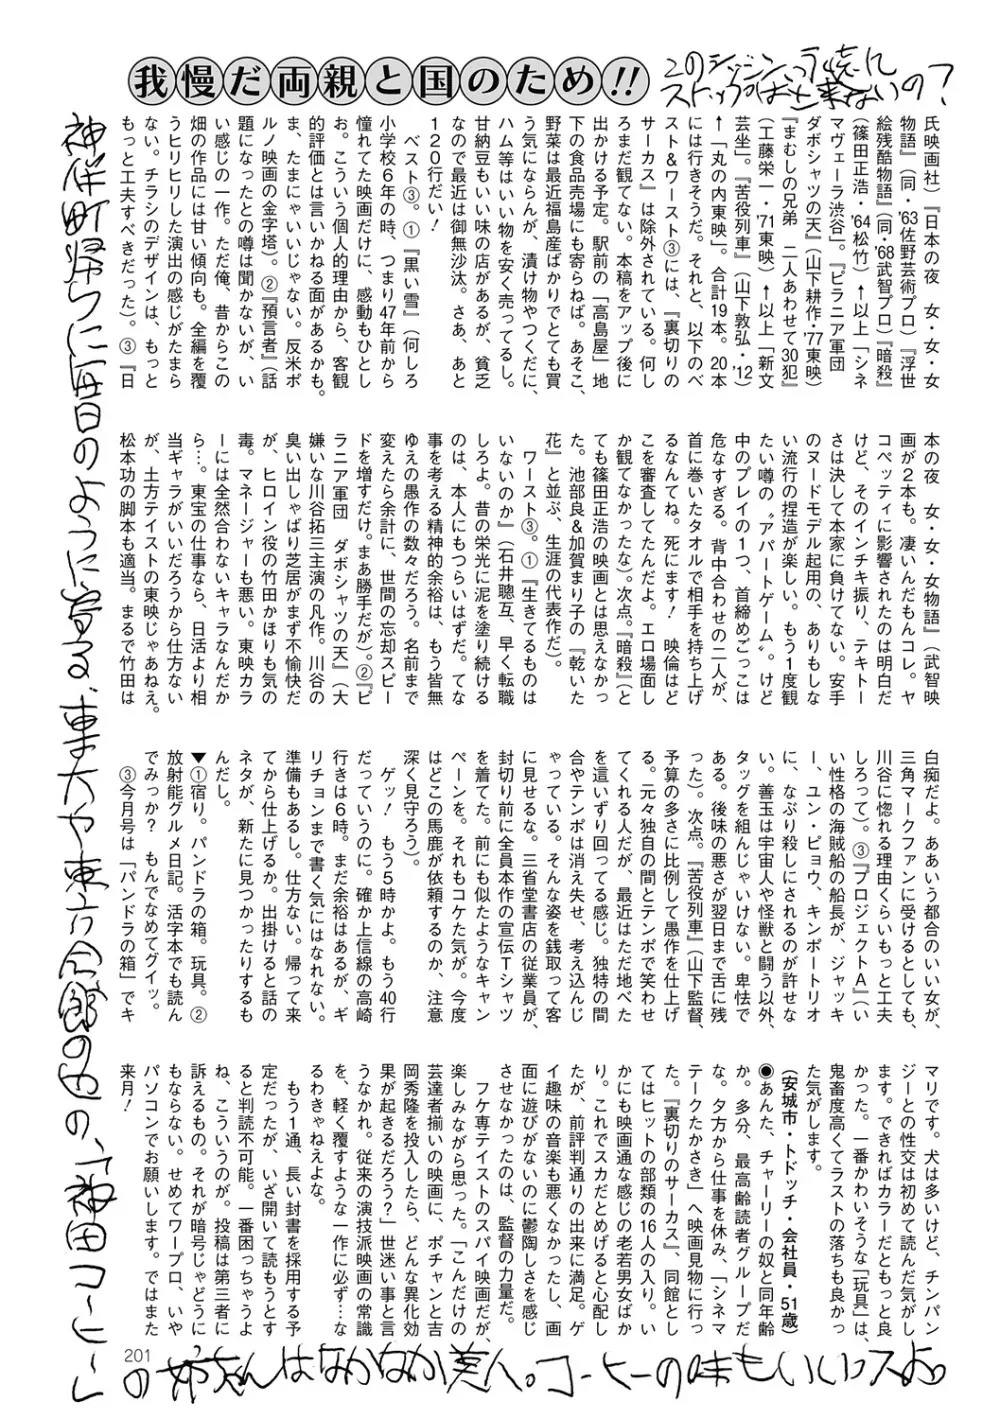 我慢だ両親と国のため!!
このシッシン、って虎に
ストップがば出来ないの?
氏映画社)『日本の夜　女・女・女
物語』(同・'63佐野芸術プロ)『浮世
絵残酷物語』(同・'68武智プロ)『暗殺』
(篠田正浩・'64松竹)↑以上「シネ
マヴェーラ渋谷」。『ピラニア軍団
ダボシャツの天』(山下耕作・'77東映)
『まむしの兄弟　二人あわせて30犯』
(工藤栄一・'71東映)↑以上「新文
芸坐」。『苦役列車』(山下敦弘・'12)
↑「丸の内東映」。合計19本。20本
には行きそうだ。それと、以下のベ
スト&ワースト③には、『裏切りの
サーカス』は除外されている。何し
ろまだ観てない。本稿をアップ後に
出かける予定。駅前の「高島屋」地
下の食品売場にも寄らねば。あそこ、
野菜は最近福島産ばかりでとても買
う気にならんが、漬け物やつくだに、
ハム等はいい物を安く売ってるし。
甘納豆もいい味の店があるが、貧乏
なので最近は御無沙汰。さあ、あと
120行だい!
ベスト③。①『黒い雪』(何しろ
小学校6年の時、つまり47年前から
憧れてた映画だけに、感動もひとし
お。こういう個人的理由から、客観
的評価とは言いかねる面があるかも。
ま、たまにゃいいじゃない。反米ポ
ルノ映画の金字塔)。②『預言者』(話
題になったとの噂は聞かないが、い
い感じの一作。ただ俺、昔からこの
畑の作品には甘い傾向も。全編を覆
うヒリヒリした演出の感じがたまら
ない。チラシのデザインは、もっと
もっと工夫すべきだった)。③『日
本の夜　女・女・女物語』(武智映
画が2本も。凄いんだもんコレ。ヤ
コペッティに影響されたのは明白だ
けど、そのインチキ振り、テキトー
さは決して本家に負けてない。安手
のヌードモデル起用の、ありもしな
い流行の捏造が楽しい。もう1度観
たい噂の〝アパートゲーム〟。けど
中のプレイの1つ、首締めごっこは
危なすぎる。背中合わせの二人が、
首に巻いたタオルで相手を持ち上げ
るなんてね。死にます!　映倫はど
こを審査してたんだよ。エロ場面し
か観てなかったな)。次点。『暗殺』(と
ても篠田正浩の映画とは思えなかっ
た。池部良&加賀まり子の『乾いた
花』と並ぶ、生涯の代表作だ)。
ワースト③。①『生きてるものは
いないのか』(石井聰互、早く転職
しろよ。昔の栄光に泥を塗り続ける
のは、本人にもつらいはずだ。てな
事を考える精神的余裕は、もう皆無
ゆえの愚作の数々だろう。名前まで
変えたら余計に、世間の忘却スピー
ドを増すだけ。まあ勝手だが)。②『ピ
ラニア軍団　ダボシャツの天』(大
嫌いな川谷拓三主演の凡作。川谷の
臭い出しゃばり芝居がまず不愉快だ
が、ヒロイン役の竹田かほりも気の
毒。マネージャーも悪い。東映カラ
ーには全然合わないキャラなんだか
ら…。東宝の仕事なら、日活より相
当ギャラがいいだろうから仕方ない
が、土方テイストの東映じゃあねえ。
松本功の脚本も適当。まるで竹田は
白痴だよ。ああいう都合のいい女が、
三角マークファンに受けるとしても、
川谷に惚れる理由くらいもっと工夫
しろって)。③『プロジェクトA』(い
い性格の海賊船の船長が、ジャッキ
ー、ユン・ピョウ、キンポートリオ
に、なぶり殺しにされるのが許せな
い。善玉は宇宙人や怪獣と闘う以外、
タッグを組んじゃいけない。卑怯で
ある。後味の悪さが翌日まで舌に残
った)。次点。『苦役列車』(山下監督、
予算の多さに比例して愚作を仕上げ
る。元々独自の間とテンポで笑わせ
てくれる人だが、最近はただ地べた
を這いずり回ってる感じ。独特の間
合やテンポは消え失せ、考え込んじ
ゃっている。そんな姿を銭取って客
に見せるな。三省堂書店の従業員が、
封切り前に全員本作の宣伝Tシャツ
を着てた。前にも似たようなキャン
ペーンを。それもコケた気が。今度
はどこの馬鹿が依頼するのか、注意
深く見守ろう)。
ゲッ!　もう5時かよ。もう40行
だっていうのに。確か上信線の高崎
行きは6時。まだ余裕はあるが、ギ
リチョンまで書く気にはなれない。
準備もあるし。仕方ない。帰って来
てから仕上げるか。出掛けると話の
ネタが、新たに見つかったりするも
んだし。
▼①宿り。パンドラの箱。玩具。②
放射能グルメ日記。活字本でも読ん
でみっか?　もんでなめてグイッ。
③今月号は「パンドラの箱」でキ
マリです。犬は多いけど、チンパン
ジーとの性交は初めて読んだ気がし
ます。できればカラーだともっと良
かった。一番かわいそうな「玩具」は、
鬼畜度高くてラストの落ちも良かっ
た気がします。
(安城市・トドッチ・会社員・51歳)
◉あんた、チャーリーの奴と同年齢
か。多分、最高齢読者グループだ
な。夕方から仕事を休み、「シネマ
テークたかさき」へ映画見物に行っ
た。『裏切りのサーカス』、同館とし
てはヒットの部類の16人の入り。い
かにも映画通な感じの老若男女ばか
り。これでスカだとめげると心配し
たが、前評判通りの出来に満足。ゲ
イ趣味の音楽も悪くなかったし、画
面に遊びがないのに鬱陶しさを感じ
させなかったのは、監督の力量だ。
フケ専テイストのスパイ映画だが、
楽しみながら思った。「こんだけの
芸達者揃いの映画に、ポチャンと吉
岡秀隆を投入したら、どんな異化効
果が起きるだろう?」世迷い事と言
うなかれ。従来の演技派映画の常識
を、軽く覆すような一作に必ず…な
るわきゃねえよな。
もう1通、長い封書を採用する予
定だったが、いざ開いて読もうとす
ると判読不可能。一番困っちゃうよ
ね、こういうのが。投稿は第三者に
訴えるもの。それが暗号じゃどうに
もならない。せめてワープロ、いや
パソコンでお願いします。ではまた
来月!
神保町帰りに毎日のように寄る、東大や東六会館の近の、「神田コーヒー」
の姉ちゃんはなかなか美人。コーヒーの味もいいっスよ。
201